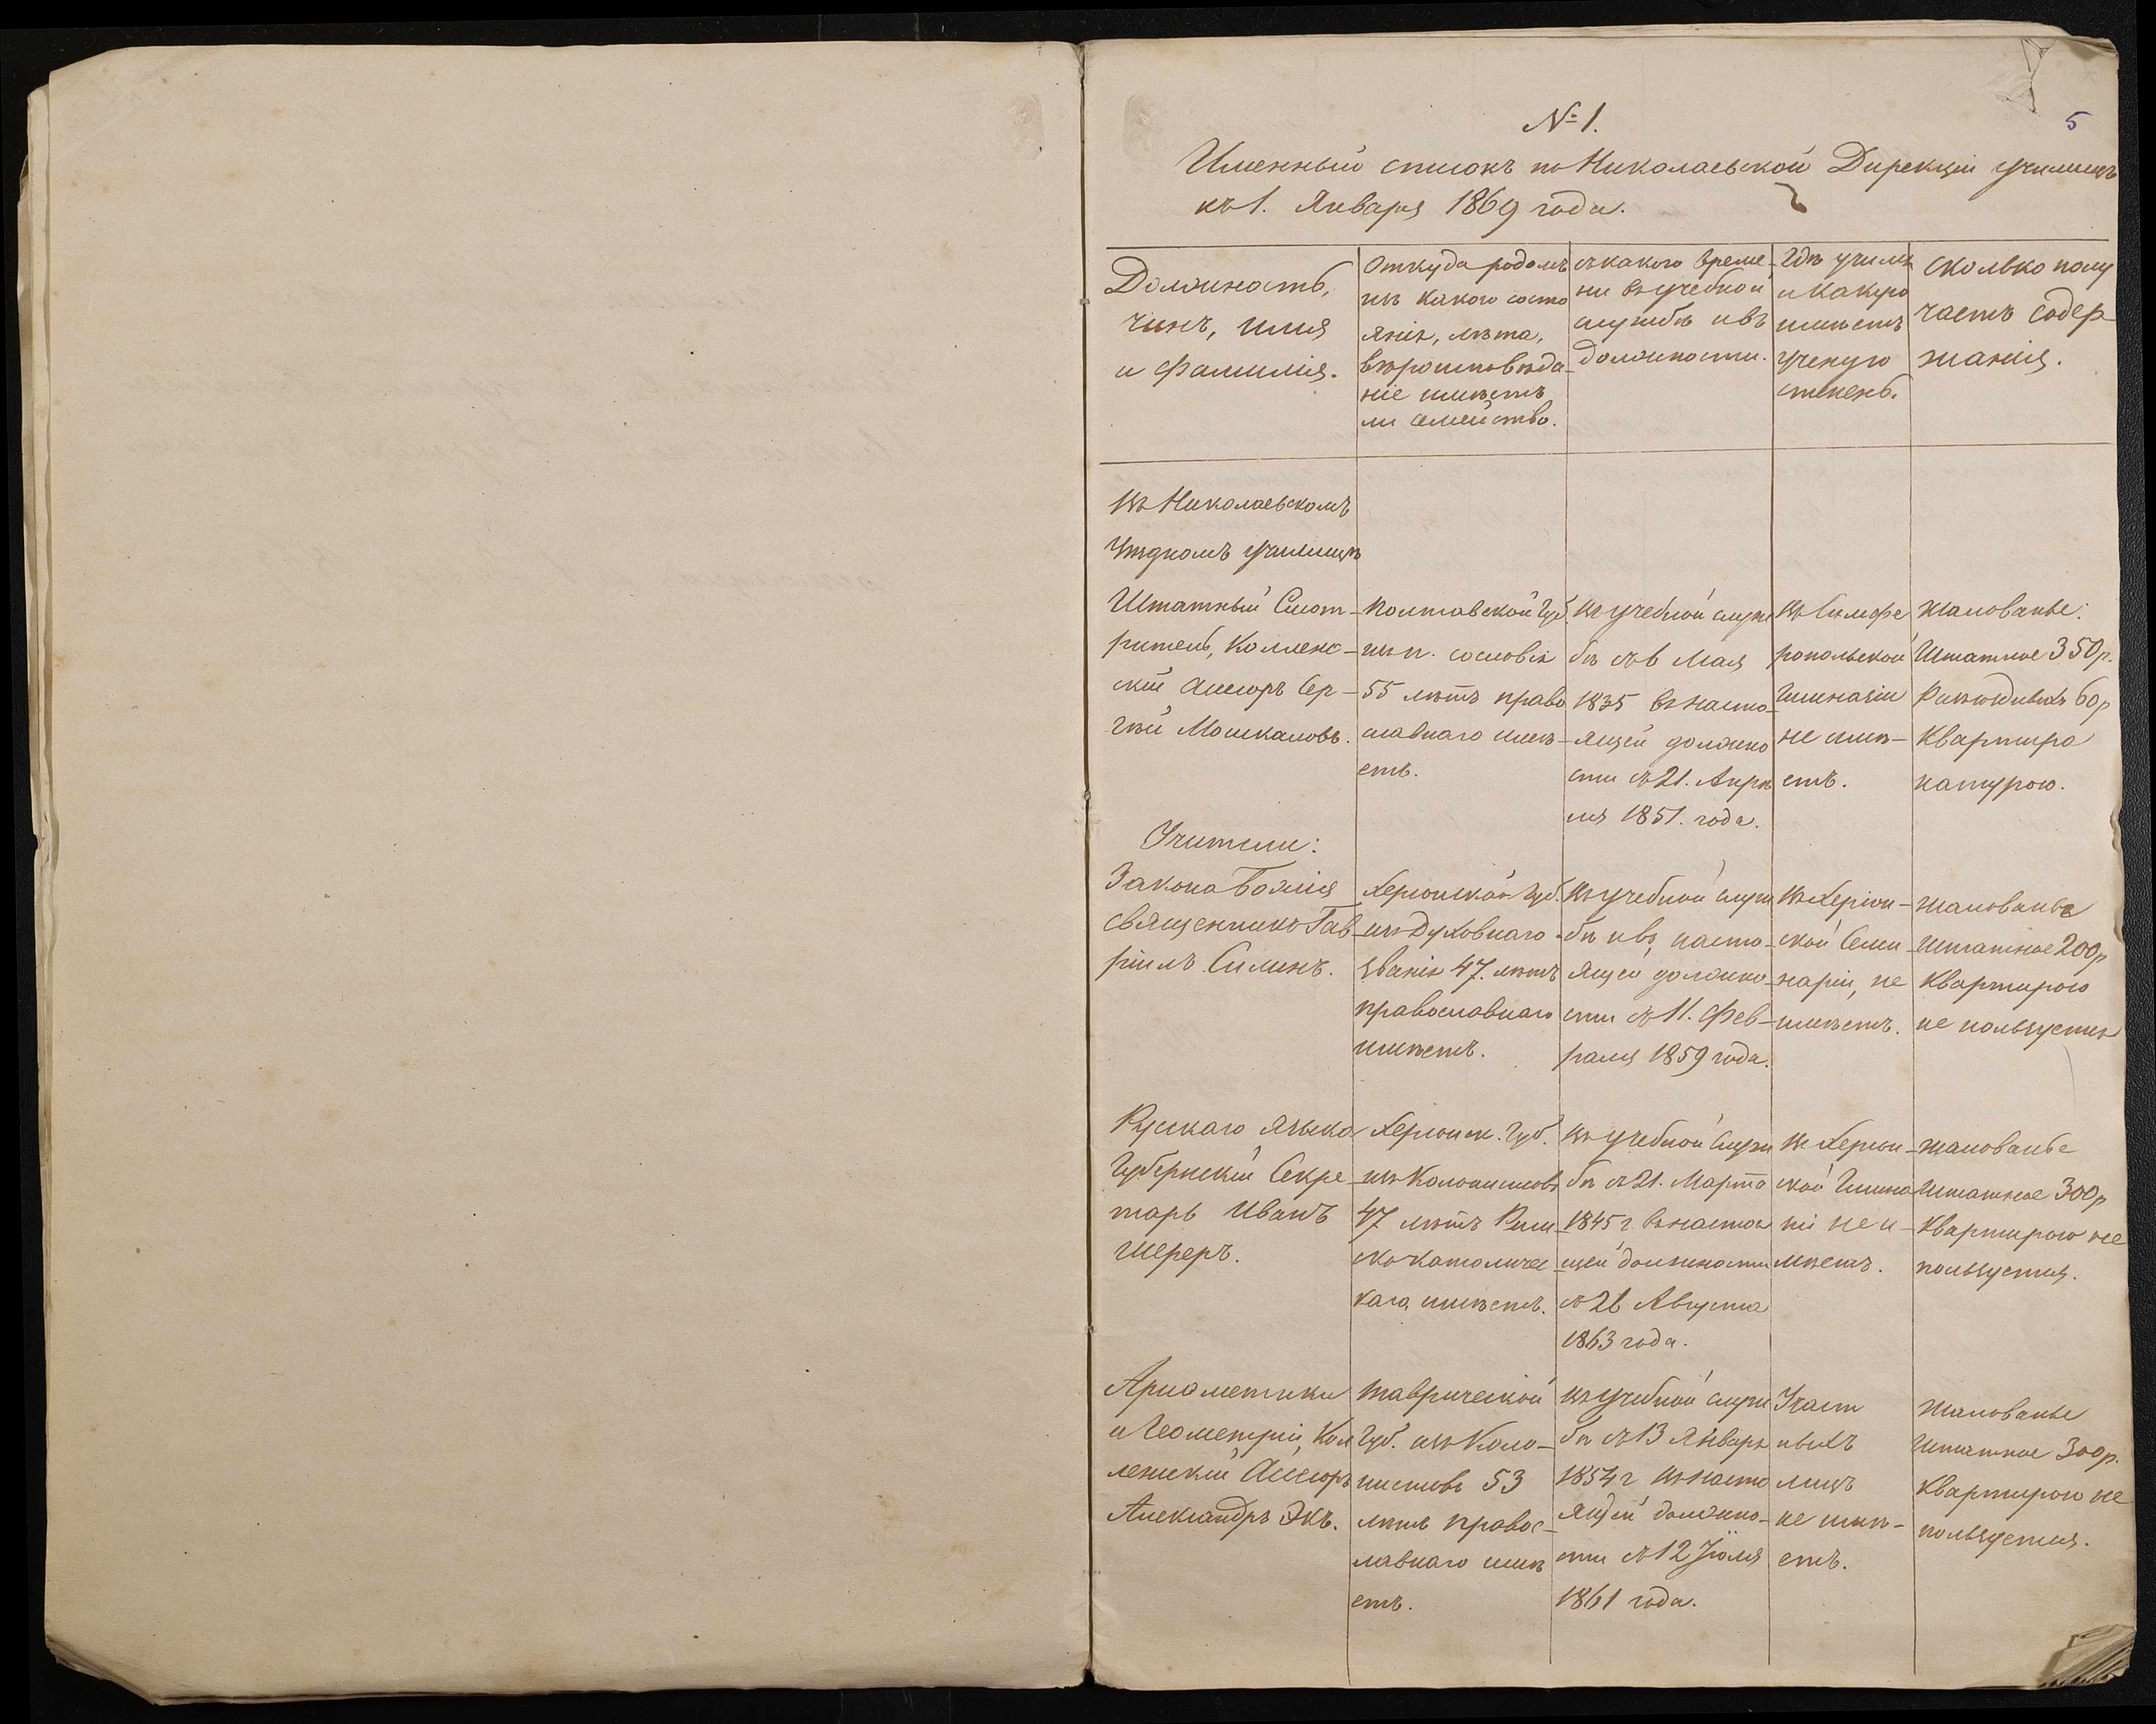 № 1.
5
Именный списокъ по Николаевской Дирекціи училищъ
къ 1. Января 1869 года.
Должность,
чинъ, имя
и фамилія.
Откуда родомъ
изъ какого состо
янія, лѣта,
вѣроисповѣда-
ніе имѣетъ
ли семейство.
съ какого време-
ни въ учебной
службѣ и въ
должности.
Гдѣ училъ
и какую
имѣетъ
ученую
степень.
Сколько полу
чаетъ содер
жанія.
Въ Николаевскомъ
Уѣздномъ училищѣ
Штатный Смот-
ритель, Коллеж-
скій Ассесоръ Сер-
гѣй Мошкаловъ.
Полтавской Губ.
изъ п. сословія
55 лѣтъ право
славнаго имѣ-
етъ.
Въ учебной служ
бѣ съ 6 Мая
1835 въ насто-
ящей должно
сти съ 21. Апрѣ
ля 1851. года.
Въ Симфе
ропольской
Гимназіи
не имѣ-
етъ.
Жалованье:
Штатное 350 р.
60 р
Квартира
натурою.
Учители:
Закона Божія
Священникъ Гав-
ріилъ Силинъ.
Херсонской Губ.
изъ Духовнаго
званія 47. лѣтъ
православнаго
имѣетъ.
Въ учебной служ
бѣ и въ насто-
ящей должно-
сти съ 11. Фев-
раля 1859 года.
Въ Херсон-
ской Семи-
наріи, не
имѣетъ.
Жалованье
Штатное 200 р
Квартирою
не пользуется
Русскаго языка
Губернскій Секре-
тарь Иванъ
Шереръ.
Херсонск. Губ.
изъ Колонистовъ
47 лѣтъ Рим-
ско-католичес
каго имѣетъ.
Въ учебной служ
бѣ съ 21. Марта
1845 г. въ настоя
щей должности
съ 26 Августа
1863 года.
Въ Херсон-
ской Гимна
зіи не и-
мѣетъ.
Жалованье
Штатное 300 р
Квартирою не
пользуется.
Ариѳметики
и Геометріи, Кол
лежскій Ассесоръ
Александръ Экъ.
Таврической
Губ. изъ Коло-
нистовъ 53
лѣтъ правос-
лавнаго имѣ
етъ.
Въ учебной служ
бѣ съ 13 Января
1854 г. въ насто
ящей должно-
сти съ 12 Іюля
1861 года.
У част
ныхъ
лицъ
не имѣ-
етъ.
Жалованье
Штатное 300 р.
Квартирою не
пользуется.